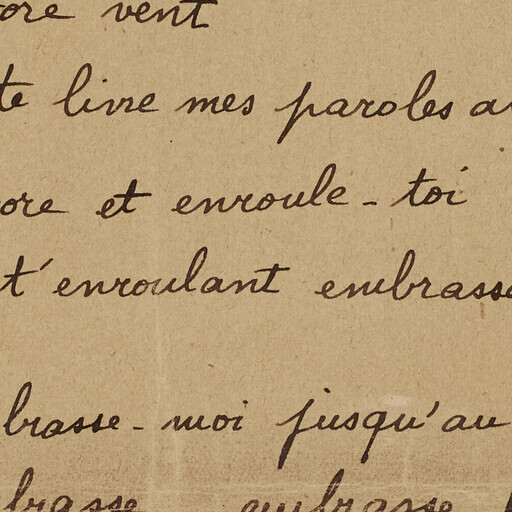 ore vent
te livre mes paroles a
ore et enroule-toi
t'enroulant embrasse
brasse-moi jusqu'au
brasse embrasse